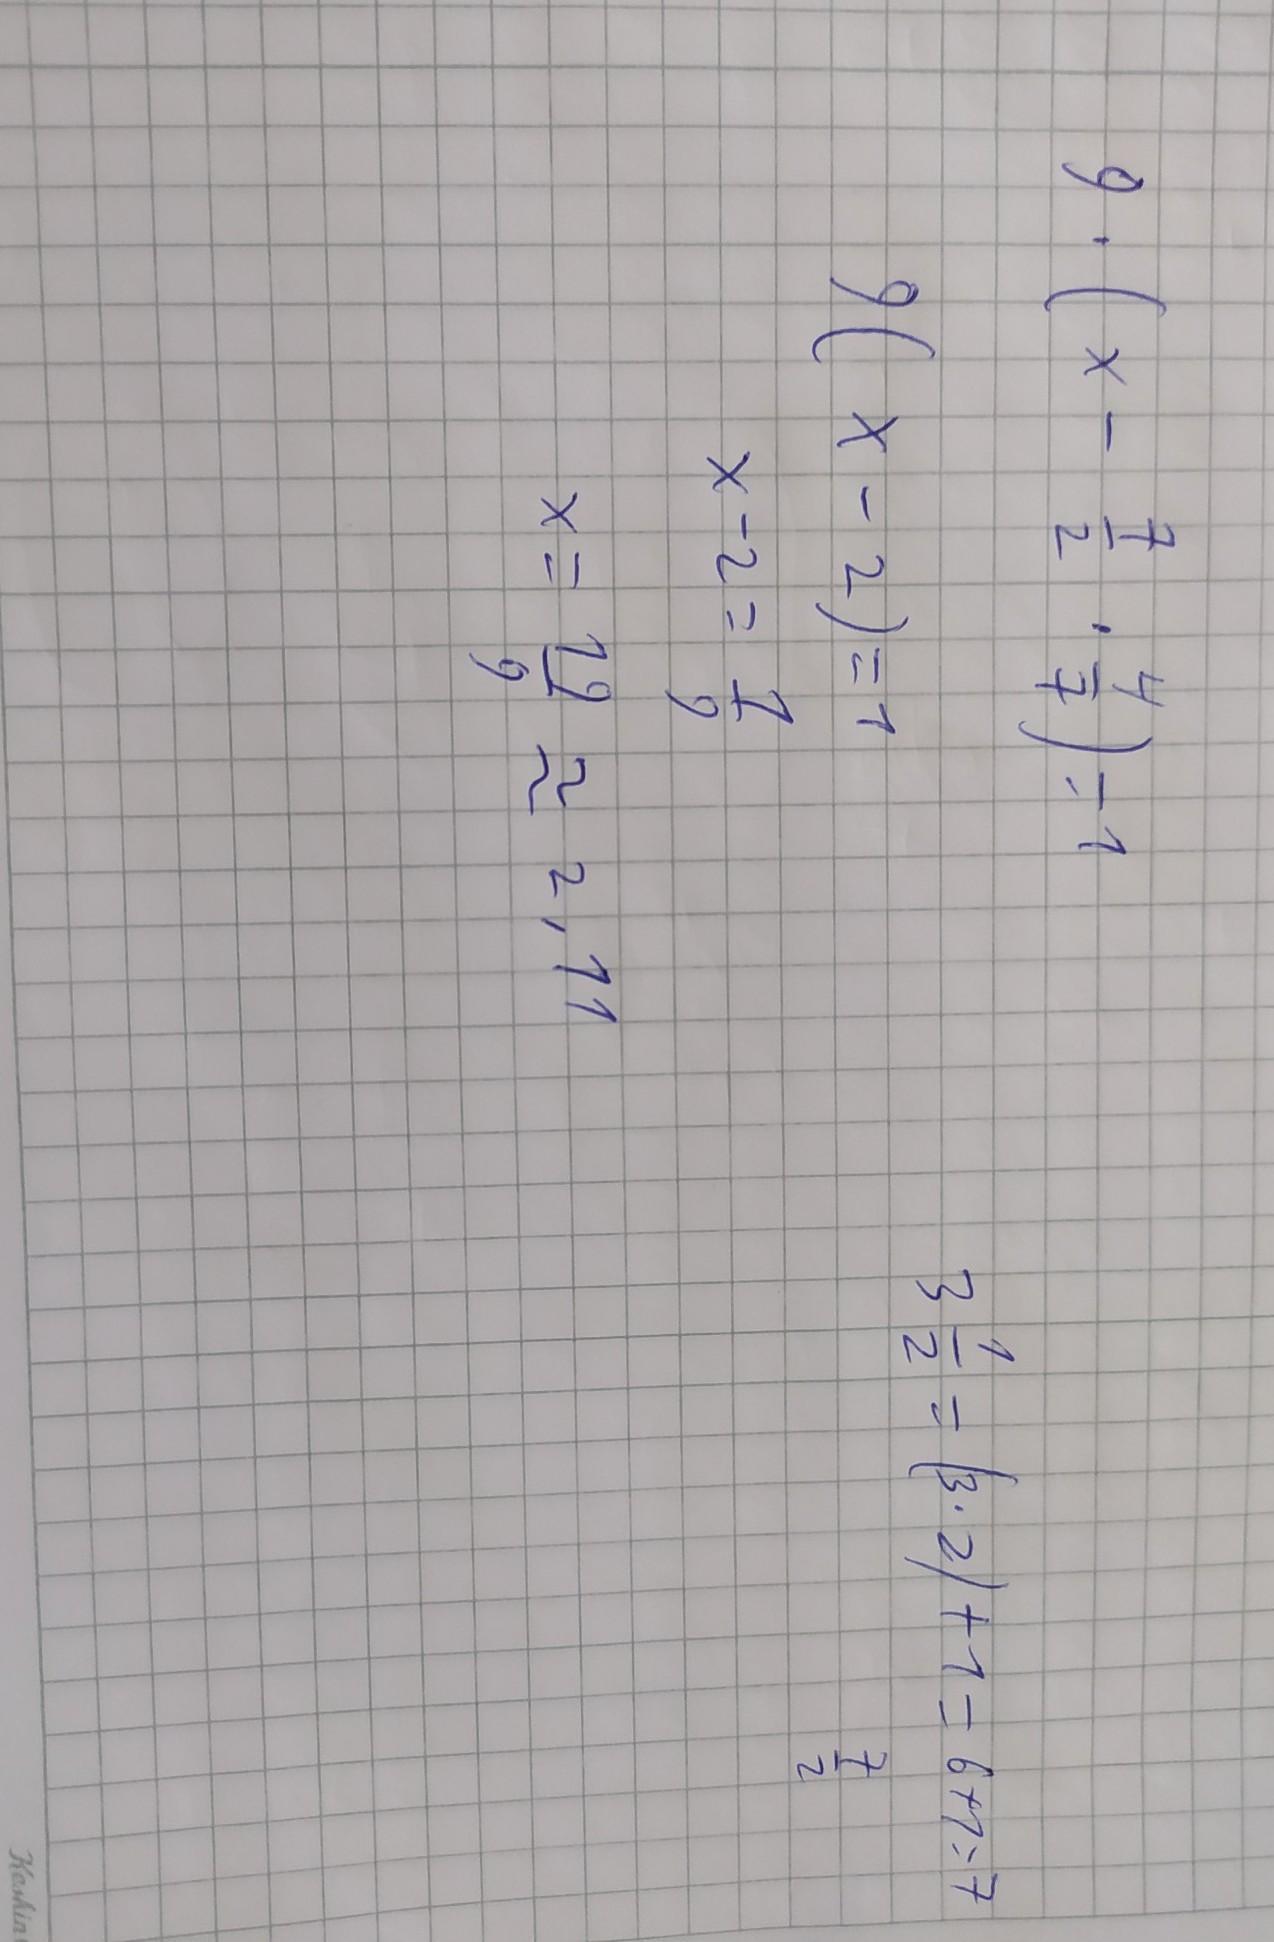 9 · ( x - 7/2 · 4/7 ) = 1
9 ( x - 2 ) = 1
x - 2 = 1/9
x = 19/9 ≈ 2,11
3 1/2 = (3·2) + 1 = 6+1=7
7/2